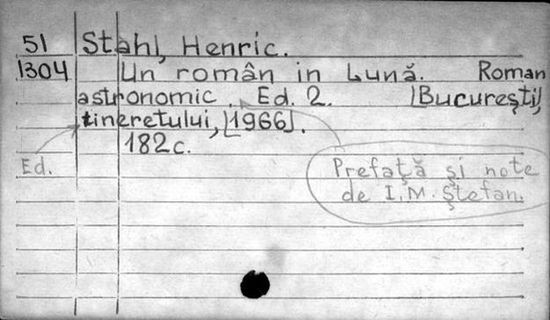 51 Stahl, Henric.
1304 Un român in Lună. Roman
astronomic. Ed. 2. [București],
tineretului, [1966].
182 c.
Ed.
Prefață și note
de I.M. Ștefan.